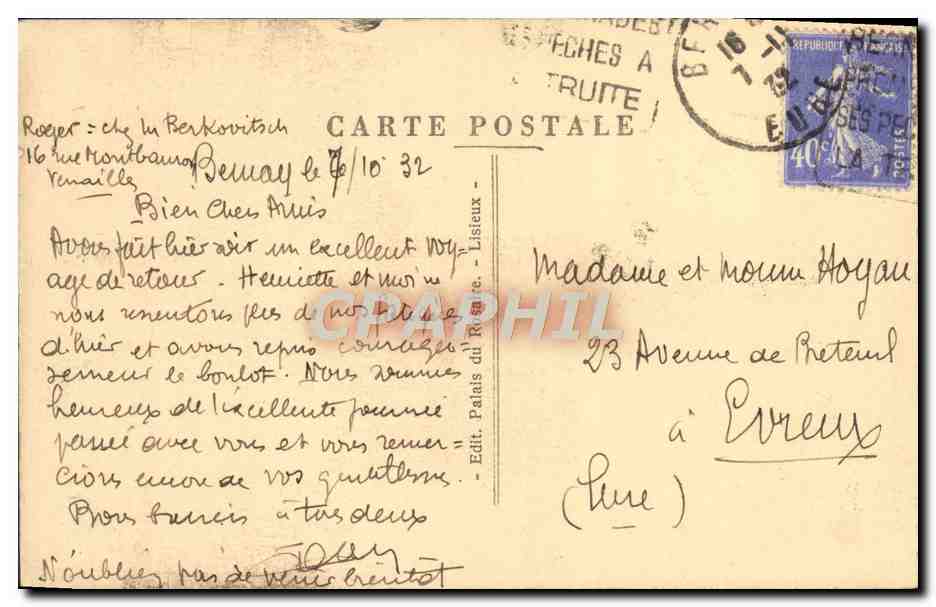 PÊCHES A
TRUITE
BER
16
7 -10
32
EURE
REPUBLIQUE FRANÇAISE
SES PE
LA T
40c
POSTES
CARTE POSTALE
Roger = chez Mr Berkovitsch
16 rue Montbauron
Versailles
Bernay le 7/10 32
Bien chers Amis
Avons fait hier soir un excellent voy=
age de retour. Henriette et moi ne
nous ressentons plus de nos fatigues
d'hier et avons repris courageu=
sement le boulot. Nous sommes
heureux de l'excellente journée
passée avec vous et vous remer=
cions encore de vos gentillesses.
Bons baisers à tous deux
N'oubliez pas de venir bientôt
- Edit. Palais du Rosaire. - Lisieux -
Madame et Monsieur Hoyau
23 Avenue de Breteuil
à Evreux
(Eure)
CPAPHIL